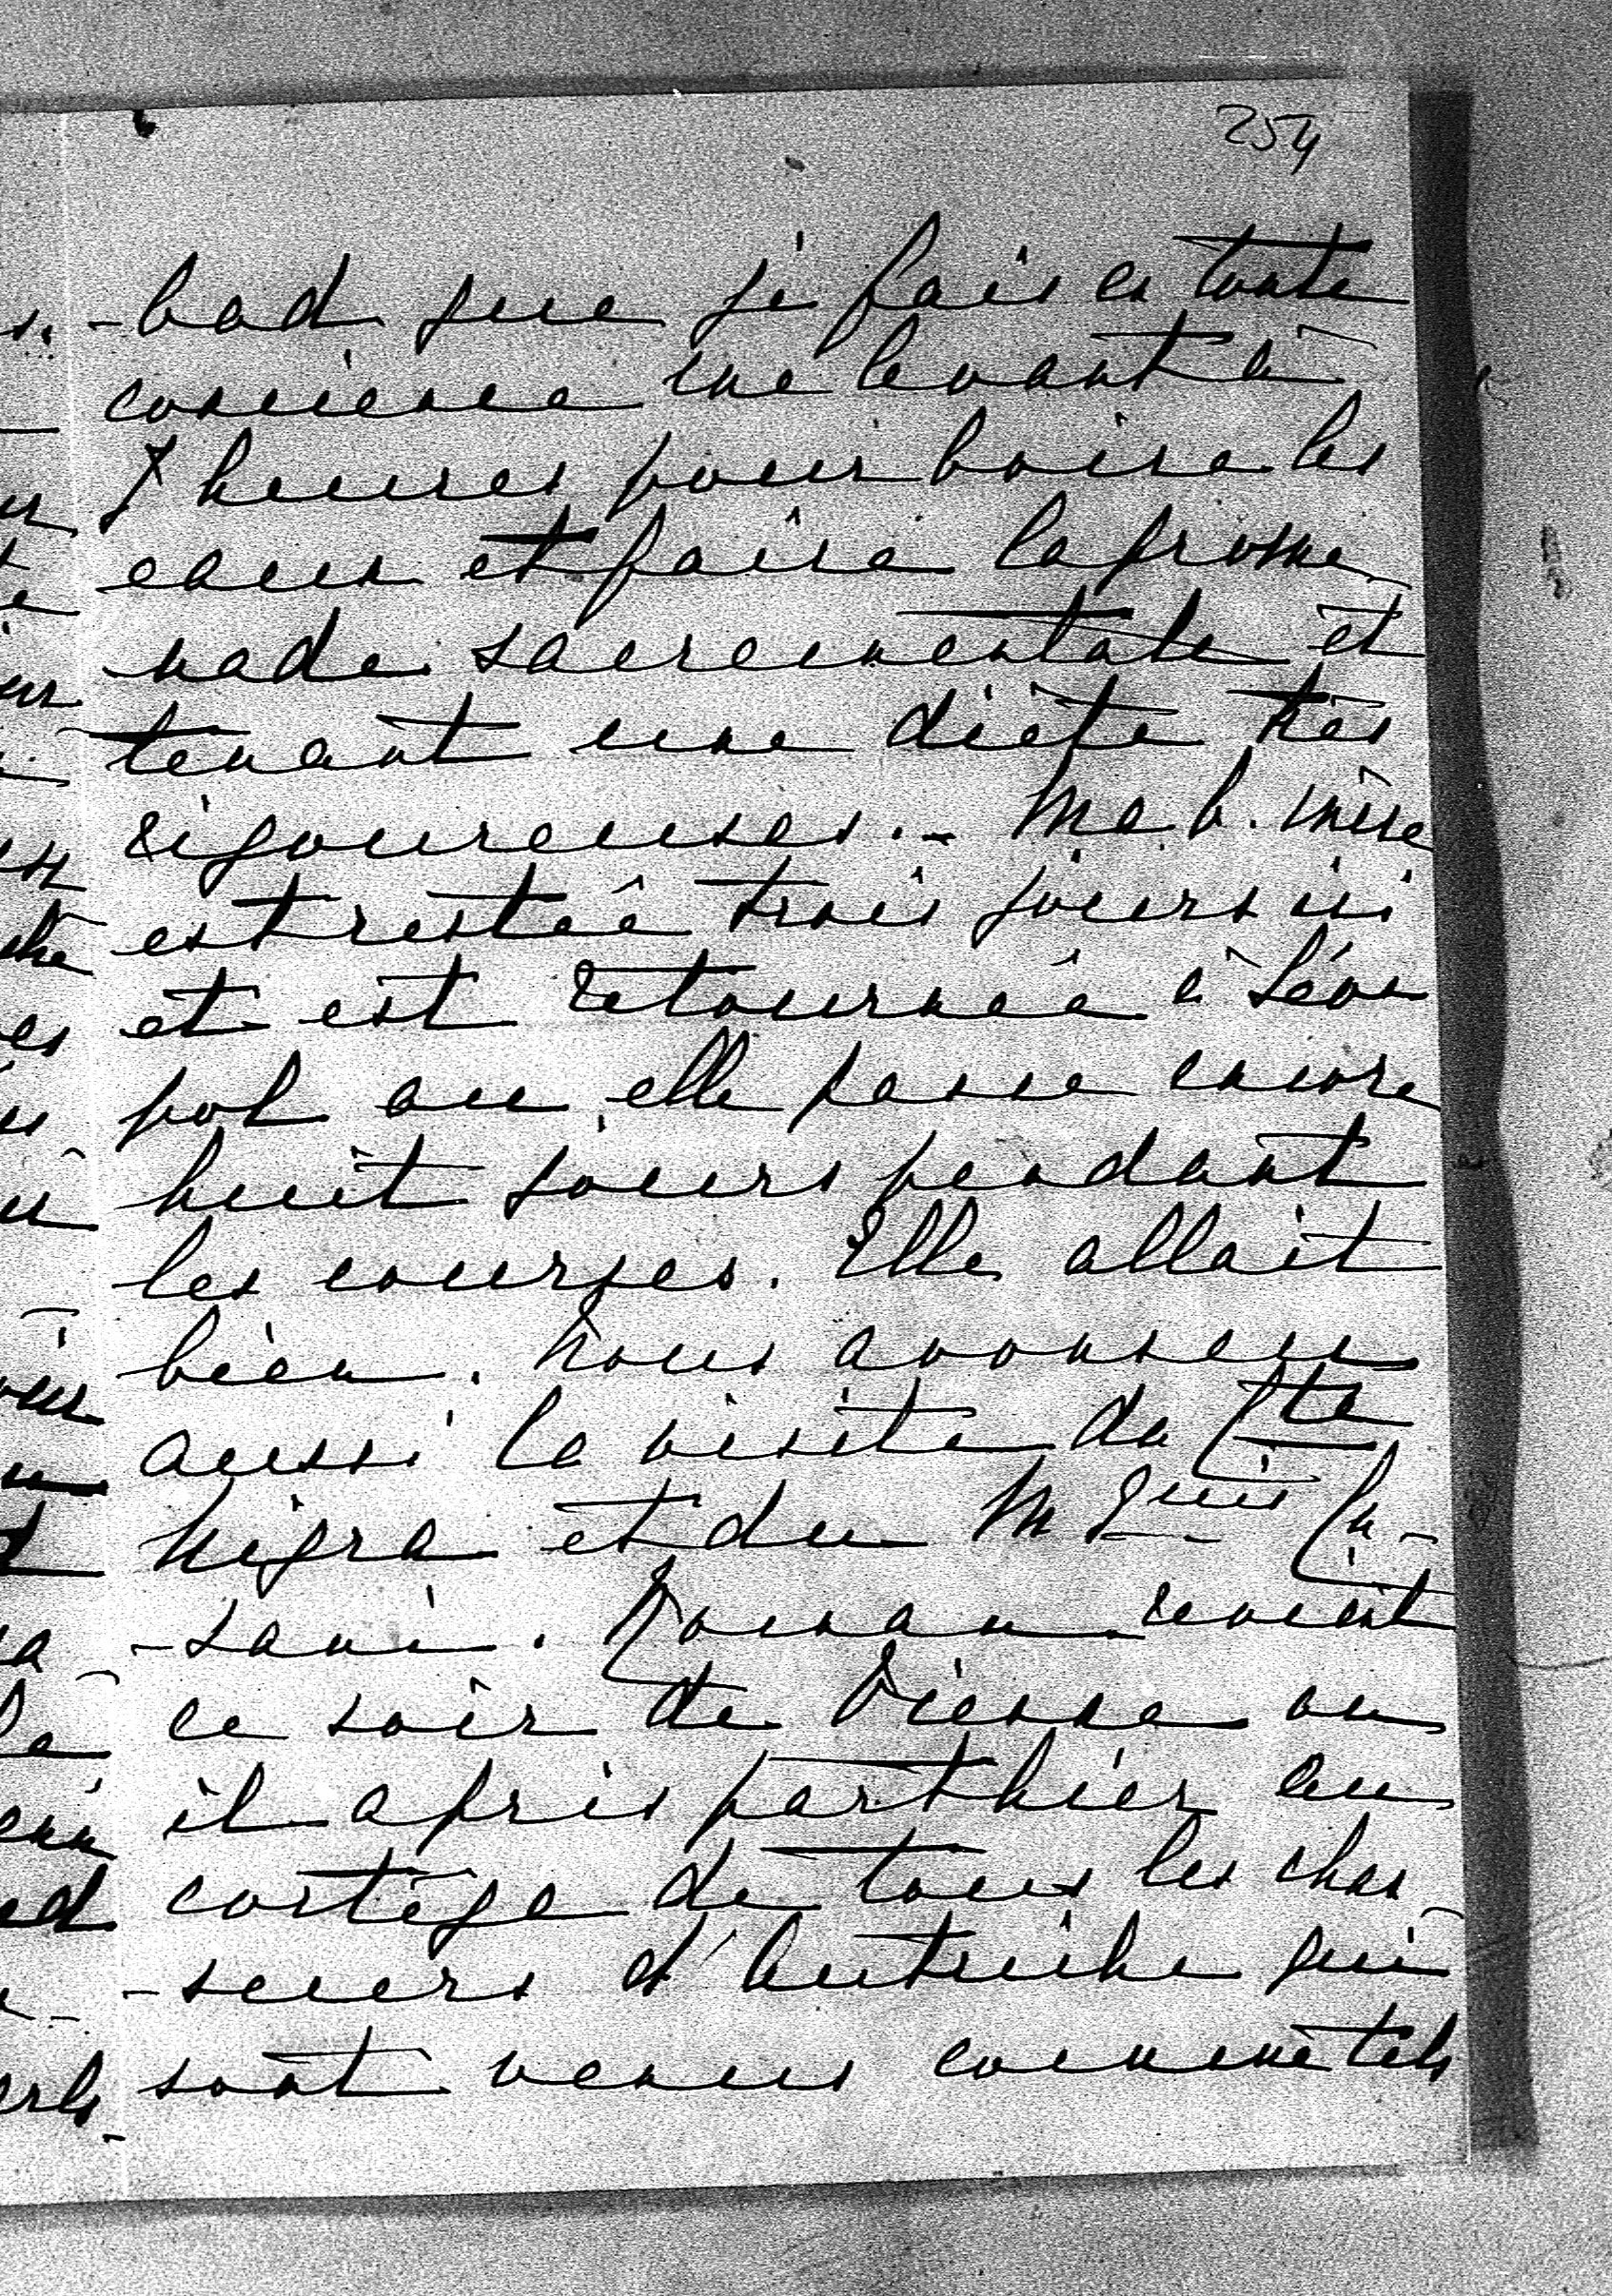 254
-bad que je fais en toute
conscience me levant à
7 heures pour boire les
eaux et faire la prome
nade sacrementale et
tenant une diète très
rigoureuses. - Ma b. mère
est restée trois jours ici
et est retournée à Léo
pol ou elle passe encore
huit jours pendant
les courses. Elle allait
bien. Nous avons eu
aussi la visite de Cte
Nigra et du M
-sani. Roman revient
ce soir de Vienne ou
il a pris part hier au
cortège de tous les chas
-seurs d'Autriche qui
sont venus comme tels